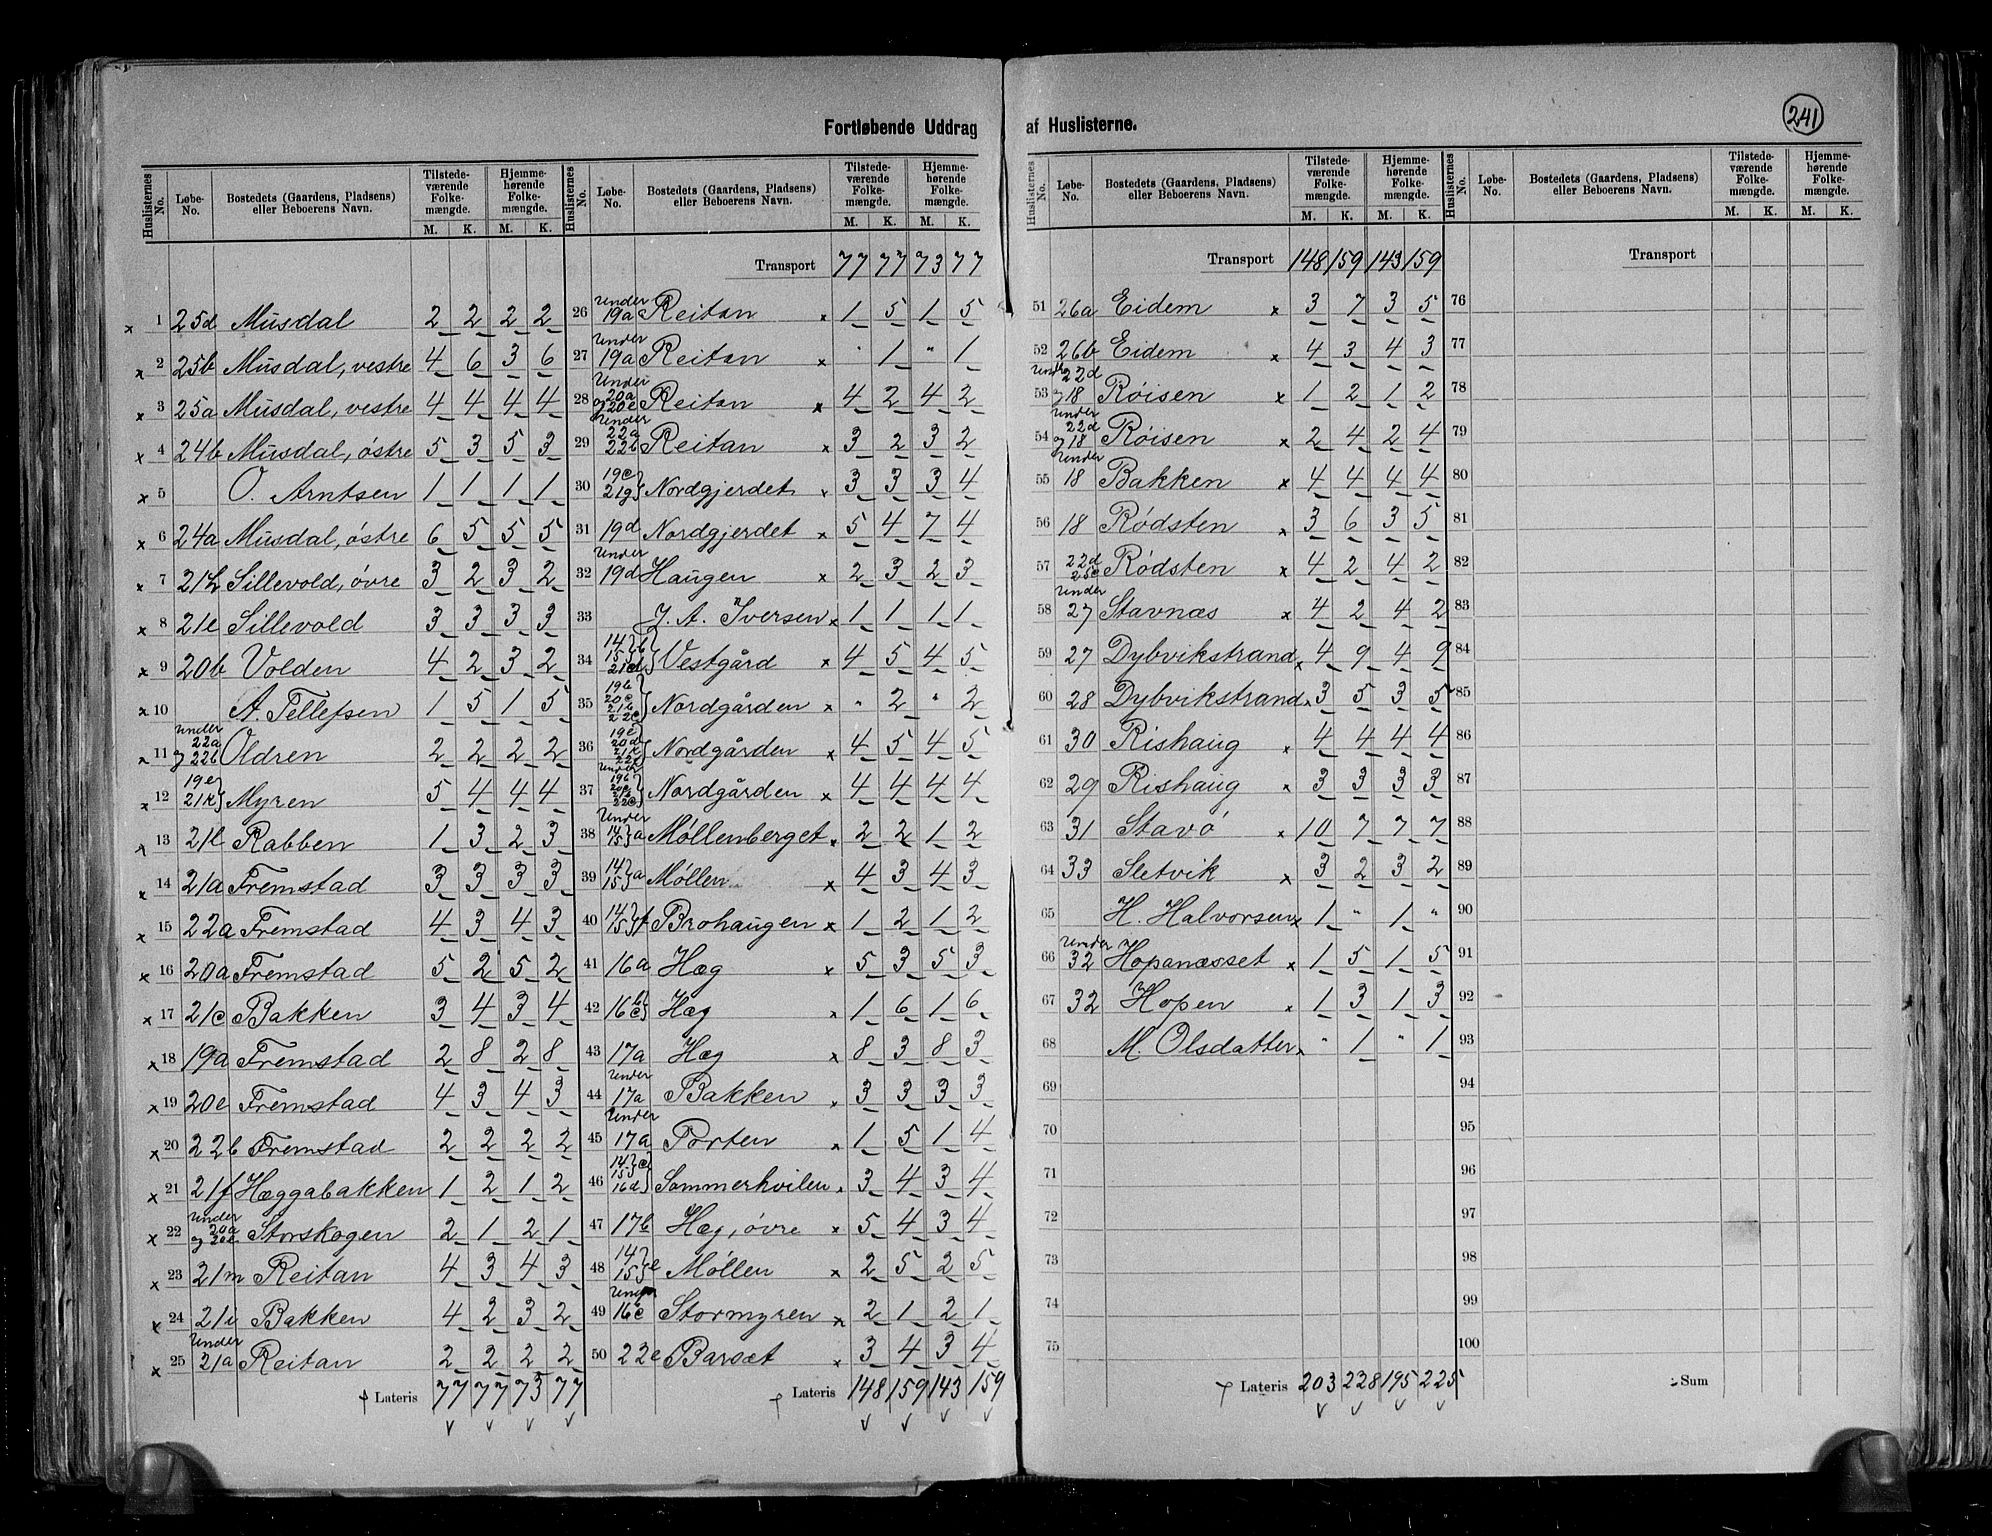 241
Fortløbende Uddrag af Huslisterne.
Huslisternes No. Løbe-No. Bostedets (Gaardens, Pladsens) eller Beboerens Navn. Tilstedeværende Folkemængde. M. K. Hjemmehørende Folkemængde. M. K.
1 25d Musdal 2 2 2 2
2 25b Musdal, vestre 4 6 3 6
3 25a Musdal, vestre 4 4 4 4
4 24b Musdal, østre 5 3 5 3
5 O. Arntsen 1 1 1 1
6 24a Musdal, østre 6 5 5 5
7 21h Sillevold, øvre 3 2 3 2
8 21e Sillevold 3 3 3 3
9 20b Volden 4 2 3 2
10 A. Tellefsen 1 5 1 5
11 under 22a og 22b Oldren 2 2 2 2
12 19e 21k Myren 5 4 4 4
13 21l Rabben 1 3 2 3
14 21a Fremstad 3 3 3 3
15 22a Fremstad 4 3 4 3
16 20a Fremstad 5 2 5 2
17 21c Bakken 3 4 3 4
18 19a Fremstad 2 8 2 8
19 20e Fremstad 4 3 4 3
20 22b Fremstad 2 2 2 2
21 21f Hæggabakken 1 2 1 2
22 under 20a og 20e Storskogen 2 1 2 1
23 21m Reitan 4 3 4 3
24 21i Bakken 4 2 3 2
25 under 21a Reitan 2 2 2 2
Lateris 77 77 73 77
Huslisternes No. Løbe-No. Bostedets (Gaardens, Pladsens) eller Beboerens Navn. Tilstedeværende Folkemængde. M. K. Hjemmehørende Folkemængde. M. K.
Transport 77 77 73 77
26 under 19a Reitan x 1 5 1 5
27 under 19a Reitan x " 1 " 1
28 under 20a og 20e Reitan x 4 2 4 2
29 under 22a 22b Reitan x 3 2 3 2
30 19c 21g Nordgjerdet x 3 3 3 4
31 19d Nordgjerdet x 5 4 7 4
32 under 19d Haugen x 2 3 2 3
33 J. A. Iversen x 1 1 1 1
34 14 15 b 21d Vestgård x 4 5 4 5
35 19b 20c 21b 22c Nordgården x " 2 " 2
36 20d Nordgården x 4 5 4 5
37 under 19b 20c 21b 22c Nordgården x 4 4 4 4
38 under 14 15 a Møllenberget x 2 2 1 2
39 14 15 a Møllen x 4 3 4 3
40 14 15 f Brohaugen x 1 2 1 2
41 16a Hæg x 5 3 5 3
42 16b c Hæg x 1 6 1 6
43 17a Hæg x 8 3 8 3
44 under 17a Bakken x 3 3 3 3
45 under 17a Porten x 1 5 1 4
46 14 15 c 16d Sommerhvilen x 3 4 3 4
47 17b Hæg, øvre x 5 4 3 4
48 14 15 e Møllen x 2 5 2 5
49 under 16c Stormyren x 2 1 2 1
50 22e Barsæt x 3 4 3 4
Lateris 148 159 143 159
Huslisternes No. Løbe-No. Bostedets (Gaardens, Pladsens) eller Beboerens Navn. Tilstedeværende Folkemængde. M. K. Hjemmehørende Folkemængde. M. K.
Transport 148 159 143 159
51 26a Eidem x 3 7 3 5
52 26b Eidem x 4 3 4 3
53 under 22d og 18 Røisen x 1 2 1 2
54 under 22d og 18 Røisen x 2 4 2 4
55 under 18 Bakken x 4 4 4 4
56 18 Rødsten x 3 6 3 5
57 22d 25c Rødsten x 4 2 4 2
58 under 27 Stavnæs x 4 2 4 2
59 27 Dybvikstrand x 4 9 4 9
60 28 Dybvikstrand x 3 5 3 5
61 30 Rishaug x 4 4 4 4
62 29 Rishaug x 3 3 3 3
63 31 Stavø x 10 7 7 7
64 33 Sletvik x 3 2 3 2
65 H. Halvorsen x 1 " 1 "
66 under 32 Hopanæsset x 1 5 1 5
67 32 Hopen x 1 3 1 3
68 M. Olsdatter x " 1 " 1
69
70
71
72
73
74
75
Lateris 203 228 195 225
Huslisternes No. Løbe-No. Bostedets (Gaardens, Pladsens) eller Beboerens Navn. Tilstedeværende Folkemængde. M. K. Hjemmehørende Folkemængde. M. K.
Transport
76
77
78
79
80
81
82
83
84
85
86
87
88
89
90
91
92
93
94
95
96
97
98
99
100
Sum